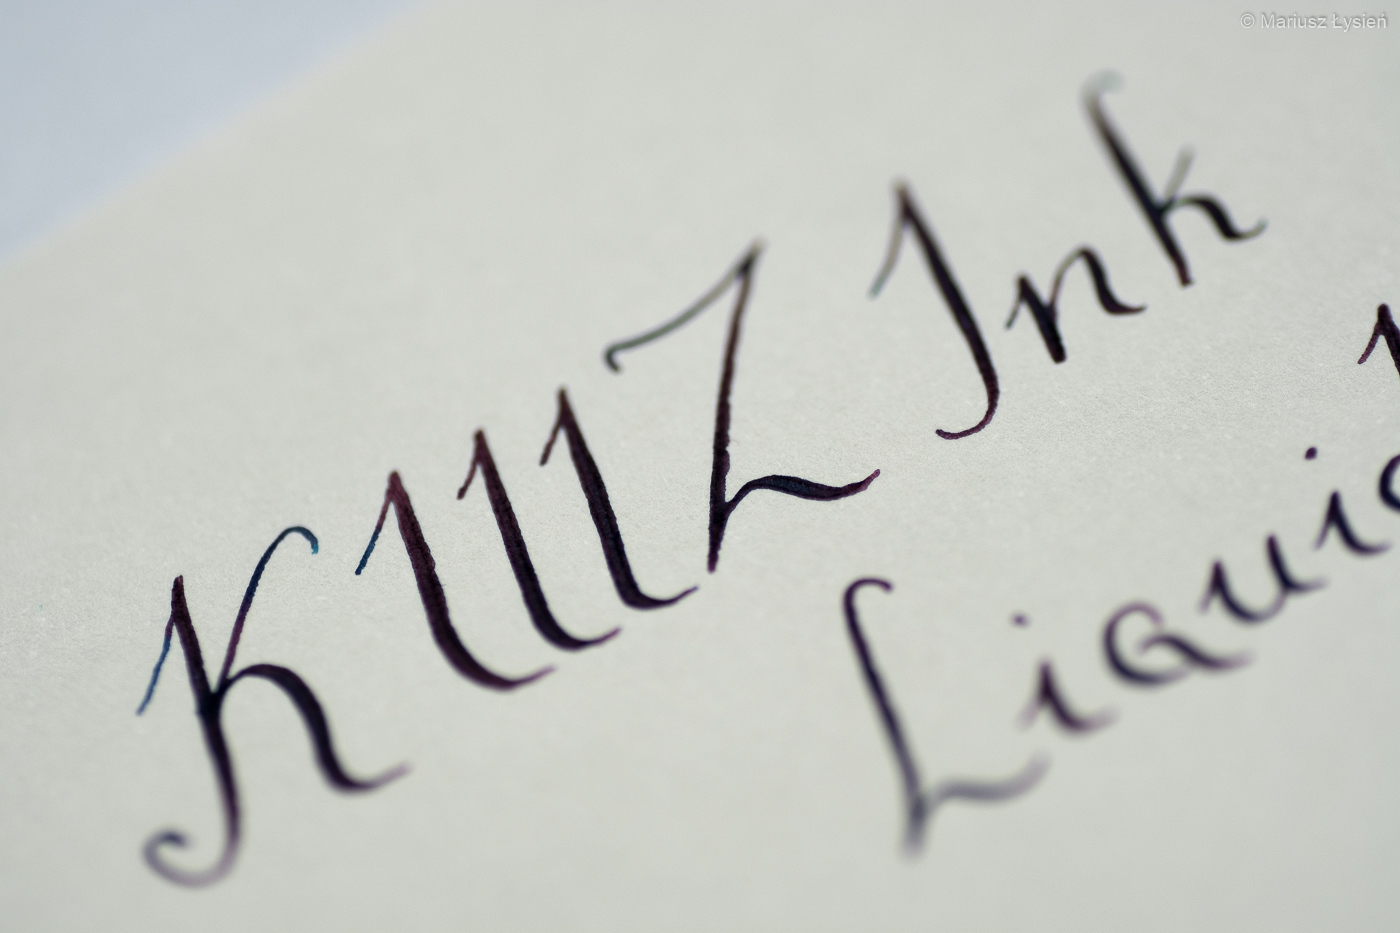 © Mariusz Łysień
KWZ Ink
Liqui